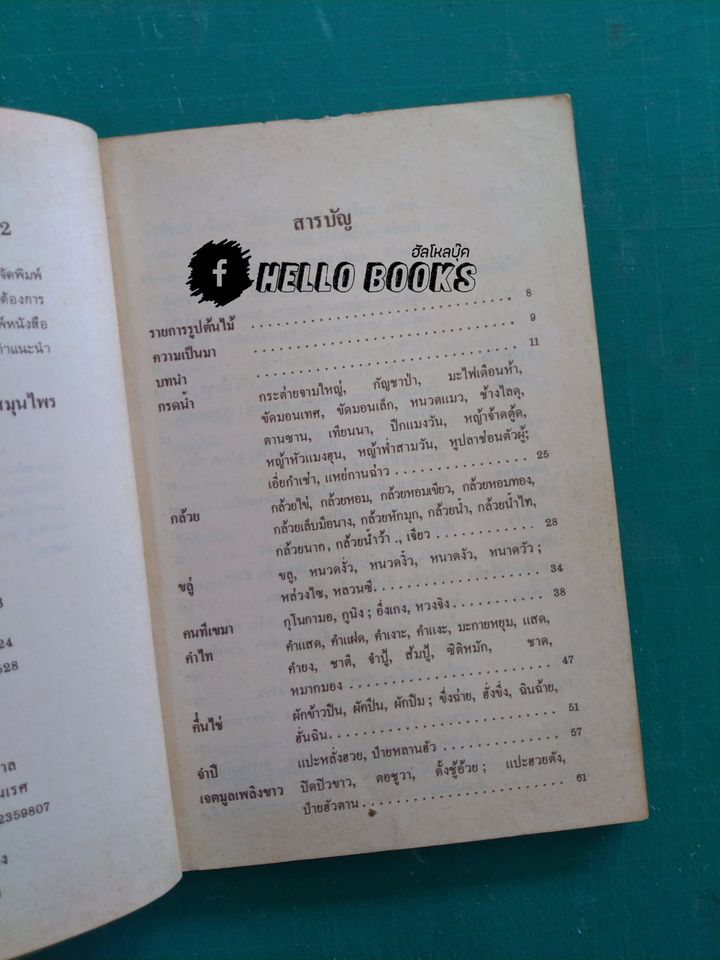 2
จัดพิมพ์
ต้องการ
พ์หนังสือ
ำแนะนำ
สมุนไพร
3
24
528
าล
นเรศ
2359807
สารบัญ
ฮัลโหลบุ๊ค
f HELLO BOOKS
รายการรูปต้นไม้ 8
ความเป็นมา 9
บทนำ 11
กรดน้ำ กระต่ายจามใหญ่, กัญชาป่า, มะไฟเดือนห้า,
ขัดมอนเทศ, ขัดมอนเล็ก, หนวดแมว, ช้างไลดุ,
ตานซาน, เทียนนา, ปีกแมงวัน, หญ้าจ้าดตู้ด,
หญ้าหัวแมงฮุน, หญ้าฟ้าสามวัน, หูปลาช่อนตัวผู้;
เอี่ยกำเช่า, แหย่กานฉ่าว 25
กล้วย กล้วยไข่, กล้วยหอม, กล้วยหอมเขียว, กล้วยหอมทอง,
กล้วยเล็บมือนาง, กล้วยหักมุก, กล้วยน้ำ, กล้วยน้ำไท,
กล้วยนาก, กล้วยน้ำว้า ., เจียว 28
ขลู่ ขลู, หนวดงั่ว, หนวดงิ้ว, หนาดงัว, หนาดวัว ;
หล่วงไซ, หลวนซี 34
คนทีเขมา กุโนกามอ, กูนิง ; อึ่งเกง, หวงจิง 38
คำไท คำแสด, คำแฝด, คำเงาะ, คำแงะ, มะกายหยุม, แสด,
คำยง, ชาตี, จำปู้, ส้มปู้, ซิติหมัก, ชาด,
หมากมอง 47
คื่นไช่ ผักข้าวปืน, ผักปืน, ผักปืม ; ขึ่งฉ่าย, ฮั่งขึ่ง, ฉินฉ้าย,
ฮั่นฉิน 51
จำปี แปะหลั่งฮวย, ป๋ายหลานฮัว 57
เจตมูลเพลิงขาว ปิดปิวขาว, ตอชูวา, ตั้งชู้อ้วย ; แปะฮวยตัง,
ป๋ายฮัวตาน 61